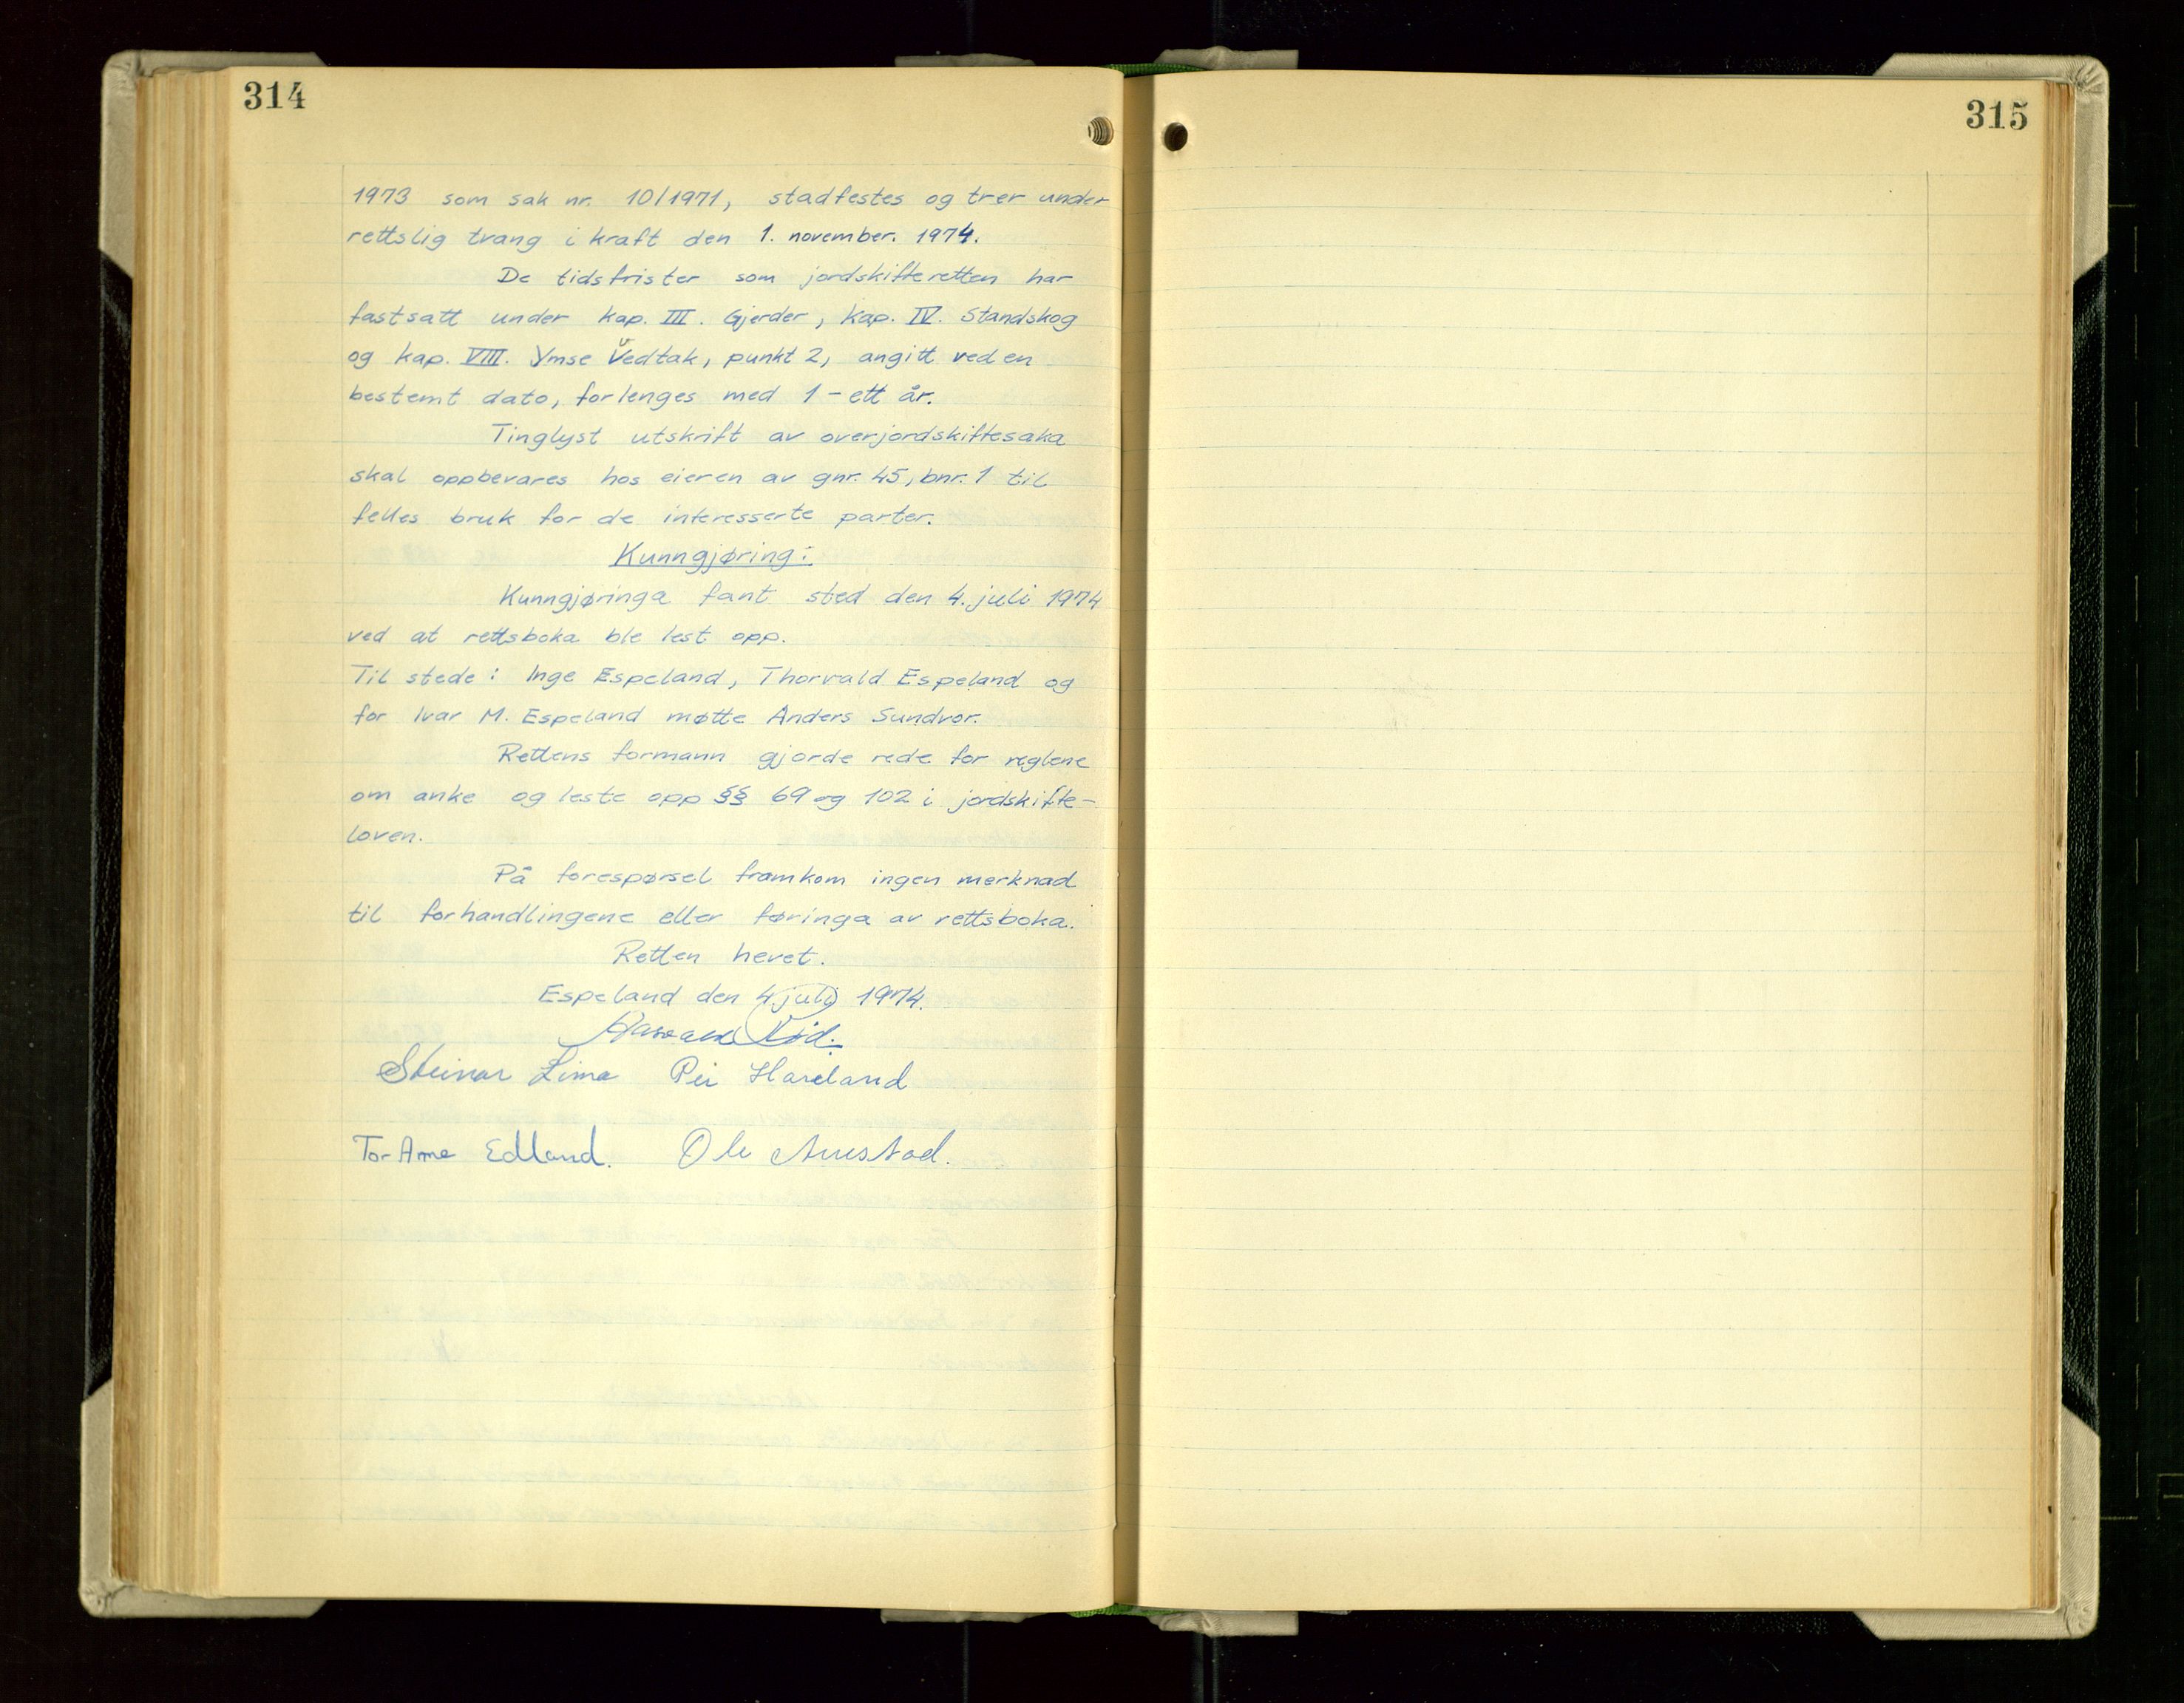 314
1973 som sak nr. 10/1971, stadfestes og trer under
rettslig tvang i kraft den 1. november. 1974.
De tidsfrister som jordskifteretten har
fastsatt under kap. III. Gjerder, kap. IV. Standskog
og kap. VIII. Ymse vedtak, punkt 2, angitt ved en
bestemt dato, forlenges med 1 - ett år.
Tinglyst utskrift av overjordskiftesaka
skal oppbevares hos eieren av gnr. 45, bnr. 1 til
felles bruk for de interesserte parter.
Kunngjøring:
Kunngjøringa fant sted den 4. juli 1974
ved at rettsboka ble lest opp.
Til stede: Inge Espeland, Thorvald Espeland og
for Ivar M. Espeland møtte Anders Sundvor.
Rettens formann gjorde rede for reglene
om anke og leste opp §§ 69 og 102 i jordskifte-
loven.
På forespørsel framkom ingen merknad
til forhandlingene eller føringa av rettsboka.
Retten hevet.
Espeland den 4 juli 1974.
Steinar Lima Per Hareland
Tor Arne Edland. Ole
315